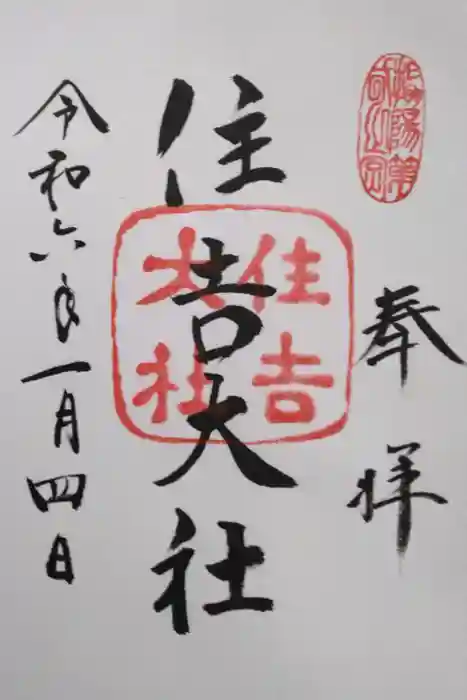 奉拝
住吉大社
住吉大社
令和六年一月四日